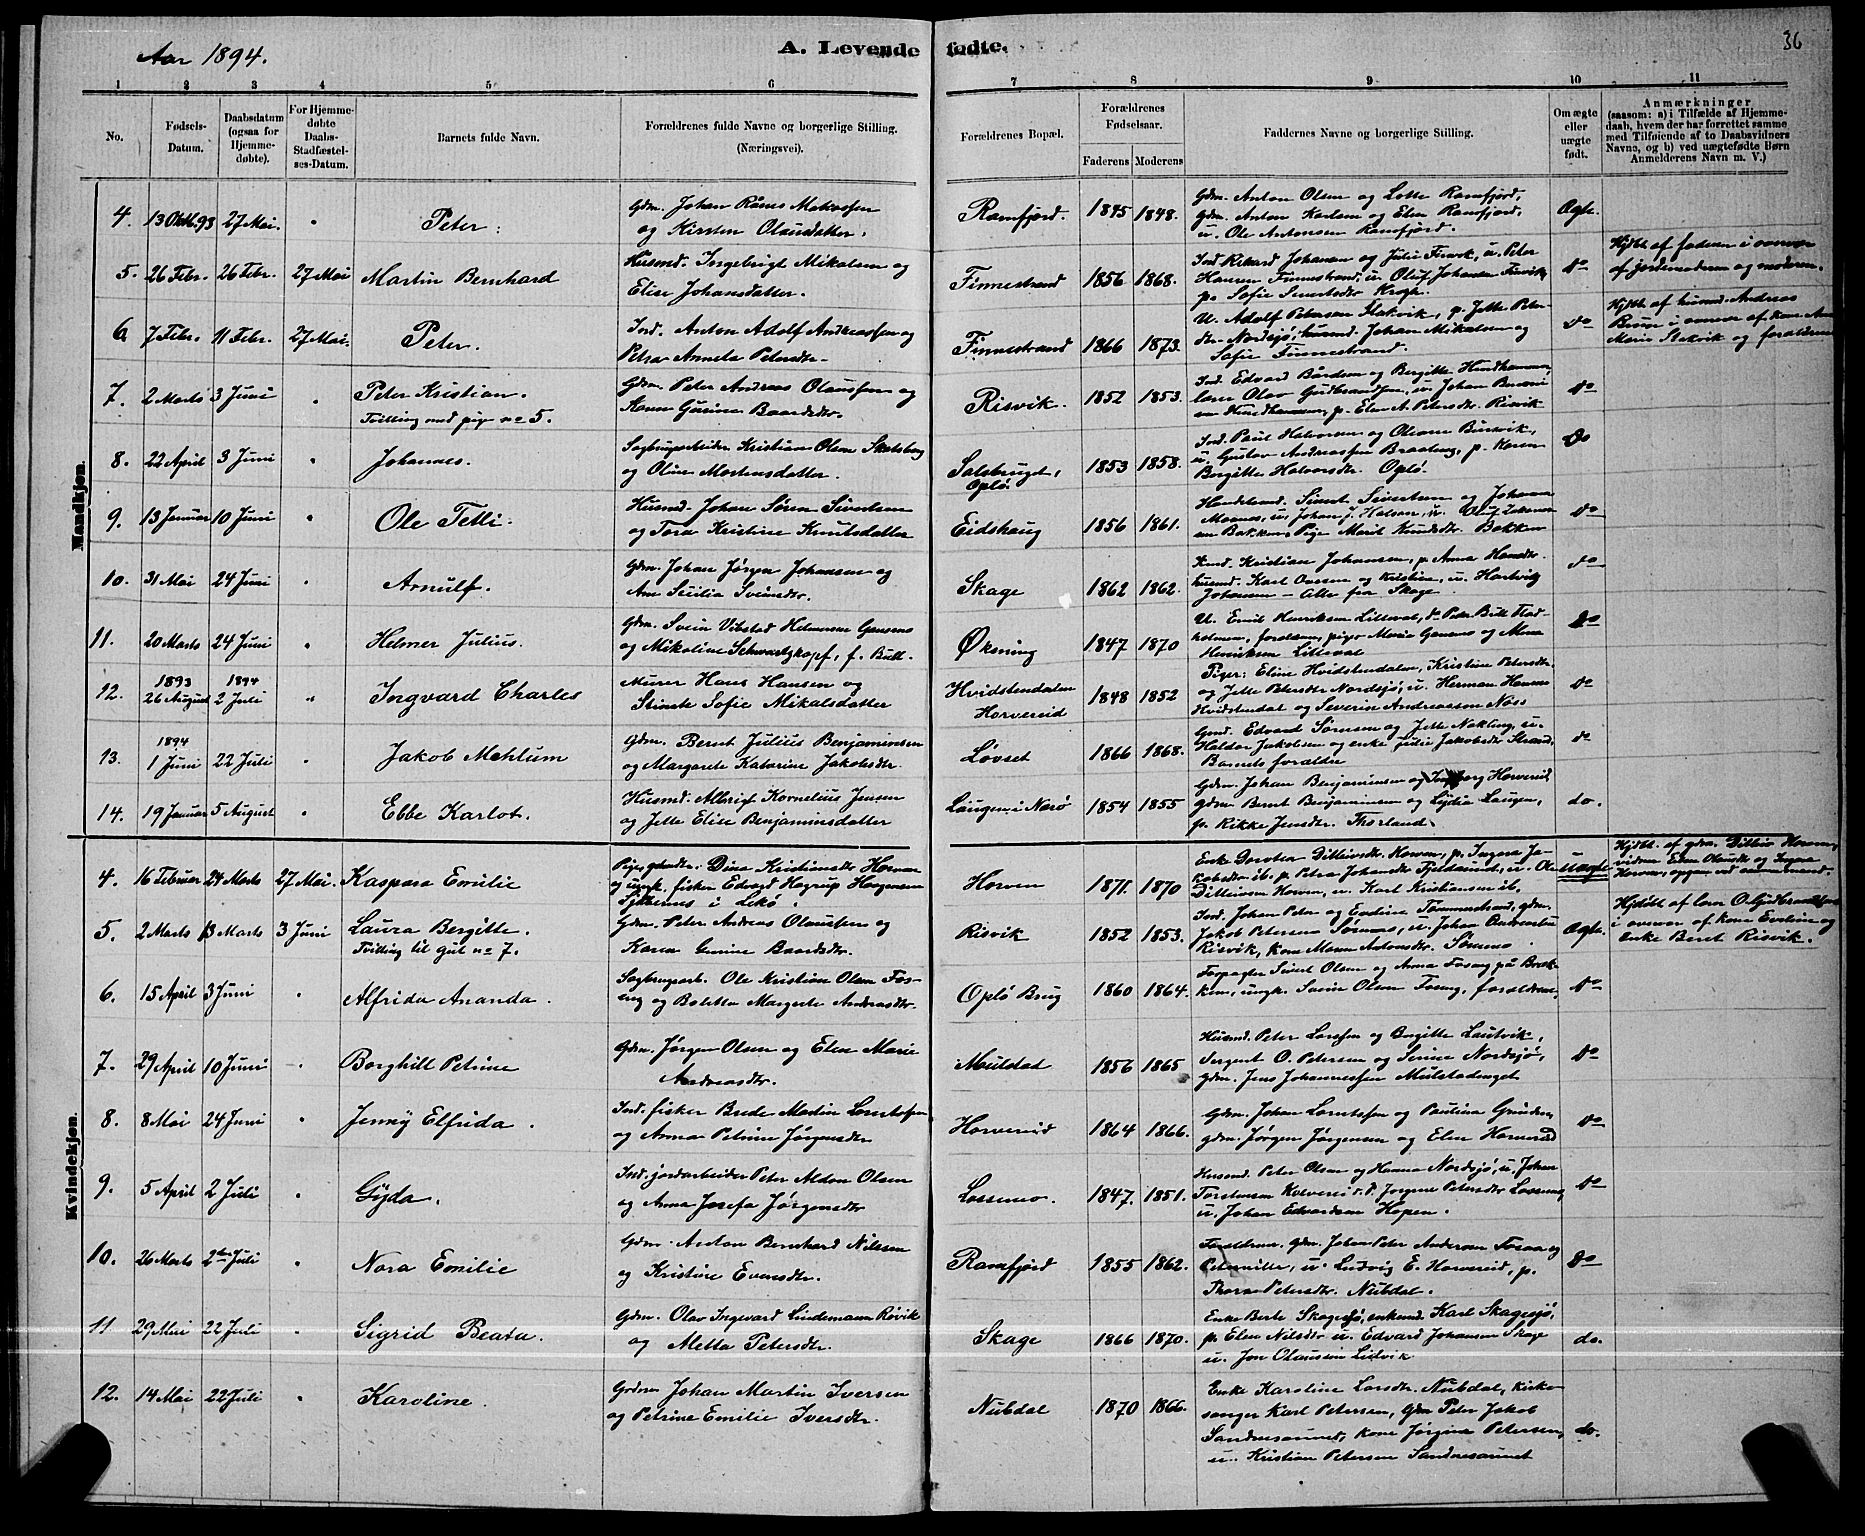 Aar 1894.
A. Levende fødte.
36
1 2 3 4 5 6 7 8 9 10 11
No.
Fødsels-Datum.
Daabsdatum (ogsaa for Hjemme-døbte).
For Hjemme-døbte Daabs-Stadfæstel-ses-Datum.
Barnets fulde Navn.
Forældrenes fulde Navne og borgerlige Stilling. (Næringsvei).
Forældrenes Bopæl.
Forældrenes Fødselsaar.
Faderens Moderens
Faddernes Navne og borgerlige Stilling.
Om ægte eller uægte født.
Anmærkninger
(saasom: a) i Tilfælde af Hjemme-
daab, hvem der har forrettet samme
med Tilføiende af to Daabsvidners
Navne, og b) ved uægtefødte Børn
Anmelderens Navn m. V.)
Mandkjøn.
4. 13 Oktb. 93 27 Mai. " Peter.
Gdm. Johan
og Kirsten Olausdatter.
Ramfjord. 1845 1848.
Gdm. Anton Olsen og Lotte Ramfjord,
Gdm. Anton Karlsen og Elen Ramfjord,
u. Ole Antonsen Ramfjord.
Ægte.
5. 26 Febr. 26 Febr. 27 Mai Martin Bernhard
Husmd. Ingebrigt Mikalsen og
Elise Johansdatter.
Finnestrand 1856 1868.
Ind. Rikard Johansen og Julie Finvik, u. Peter
Hansen Finnestrand, u. Oluf Johansen Finvik,
p. Sofie
do
Hjdbt. af faderen i overvær
af jordemoderen og moderen.
6. 7 Febr. 11 Febr. 27 Mai. Peter.
Ind. Anton Adolf Andreassen og
Petra Anneta Petersdtr.
Finnestrand 1866 1873.
U. Adolf Petersen Slakvik, p. Jette Peter-
dtr. Nordsjø, husmd. Johan Mikalsen og
Sofie Finnestrand.
do
Hjdbt. af husmd. Andreas
Bruun i overvær af kone Ane
Marie Slakvik og forældrene
7. 2 Marts 3 Juni " Peter Kristian.
Tvilling med pige no 5.
Gdm. Peter Andreas Olaussen og
Karen Gurine Baardsdtr.
Risvik. 1852 1853.
Ind. Edvard Bårdsen og Bergitte Hundhammer,
lærer Olav Gudbrandsen, u. Johan
Hundhammer, p. Elen A. Petersdtr. Risvik
do
8. 22 April 3 Juni " Johannes.
Sagbrugsarbeider Kristian Olsen
og Oline Mortensdatter.
Salsbruget, Oplø. 1853 1858.
Ind. Paul Halvorsen og Oleanna
u. Gustav Andreassen Braateng, p. Karen
Bergitte Halvorsdtr. Oplø.
do
9. 13 Januar 10 Juni " Ole Tetli.
Husmd. Johan Søren Sivertsen
og Tora Kristine Knutsdatter
Eidshaug 1856 1861.
Handelsmd. Sivert Sivertsen og Johanna
Moenes, u. Johan J.
Bakken, Pige Marit Knudsdtr. Bakken
do
10. 31 Mai 24 Juni " Arnulf.
Gdm. Johan Jørgen Johansen og
Ane Sesilia Svendsdtr.
Skage 1862 1862.
Kristian Johansen, p. Anna Hansdtr.
husmd. Karl Ovesen og Kristine, u. Hartvig
Johansen – Alle fra Skage.
do
11. 20 Marts 24 Juni " Helmer Julius.
Gdm. Svein Vibstad Helmersen
og Mikaline Schwartzkopf, f. Bull.
Øksning 1847 1870
U. Emil Henriksen Lilleval, do Peter Bull
forældrene, piger Marie og Mina
Henriksen Lilleval
do
12. 1893 26 August 1894 2 Juli " Ingvard Charles
Murer Hans Hansen og
Stinate Sofie Mikalsdatter
Hvidstendalen Horvereid 1848 1852
Piger: Eline Hvidstendalen, Kristine Petersdtr.
og Jette Petersdtr Nordsjø, u. Herman Hansen
Hvidstendal og Severin Andreassen Næss
do
13. 1894 1 Juni 22 Juli " Jakob Mehlum
Gdm. Bernt Julius Benjaminsen
og Margarete Katarine Jakobsdtr.
Løvset 1866 1868.
Gmd. Edvard Sørensen og Jette Nakling, u.
Haldor Jakobsen og enke Julie Jakobsdtr Strand,
Barnets forældre
do
14. 19 Januar 5 August " Ebbe Karlot.
Husmd. Albrigt Kornelius Jensen
og Jette Elise Benjaminsdatter
Laugen i Nærø 1854 1855
Gdm. Johan Benjaminsen og Ingeborg Horvereid,
gdm. Bernt Benjaminsen og Lydia Laugen,
p. Rikke Jensdtr. Thorland.
do.
Kvindekjøn.
4. 16 Februar 24 Marts 27 Mai. Kaspara Emilie
Pige, gaardmdtr. Dina Kristiansdtr Horven
og ungk. fisker Edvard Hagrup Haagensen
i Lekø.
Horven 1871. 1870
Enke Dorothea Ditlevsdtr. Horven, p. Ingara Ja-
kobsdtr ib. p. Petra Johansdtr Fjeldsund, u. Ole
Ditlevsen Horven, u. Karl Kristiansen ib.
uægte
Hjdbt. af gdm. Ditlev Horven,
vidner Elen Olausdtr og Ingara
Horven,
5. 2 Marts 13 Marts 3 Juni Laura Bergitte.
Tvilling til gut no 7.
Gdm. Peter Andreas Olaussen og
Karen Gurine Baardsdtr.
Risvik 1852 1853.
Ind. Johan Peter og Eveline Tømmerstrand, gdm.
Jakob Petersen Sørnes, u. Johan
Risvik, kone Maren Antonsdtr. Sømnes.
Ægte.
Hjdøbt af lærer O. Gudbrandsen
i overvær af kone Eveline og
Enke Berit Risvik.
6. 15 April 3 Juni " Alfrida Ananda.
Sagbrugsarb. Ole Kristian Olsen Fos-
eng og Boletta Margrete Andreasdtr.
Oplø Brug 1860 1864.
Forpagter Sivert Olsen og Anna Foseng på Brak-
ken, ungk. Svein Olsen Foseng, forældrene,
do
7. 29 April 10 Juni " Borghill Petrine
Gdm. Jørgen Olsen og Elen Marie
Andreasdtr.
Mulstad 1856 1865
Husmd. Peter Larssen og Bergitte Lautvik,
Sergent O. Petersen og Nordsjø,
gdm. Jens Johannessen Mulstadenget
do
8. 8 Mai 24 Juni " Jenny Elfrida.
Ind. fisker Brede Martin Lorntssen
og Anna Petrine Jørgensdtr
Horvereid 1864 1866.
Gdm. Johan Lorntssen og Paulina
gdm. Jørgen Jørgensen og Elen Horvereid
do
9. 5 April 2 Juli " Gyda.
Ind. jordarbeider Peter Aldon Olsen
og Anna Josefa Jørgensdtr
Lossemo. 1847. 1851.
Husmd. Peter Olsen og Hanna Nordsjø, u. Johan
Torstensen Kolvereid. P. Jørgine Petersdtr Lossemo,
u. Johan Edvardsen Hopen.
do
10. 26 Marts 2den Juli " Nora Emilie
Gdm. Anton Bernhard Nilssen
og Kristine Evensdtr.
Ramfjord 1855 1862.
Forældrene. Gdm. Johan Peter Andersen Fosaa og
Petermille, u. Ludvig E. Horvereid, p.
Thora Petersdtr. Nubdal.
do
11 29 Mai 22 Juli " Sigrid Beata.
Gdm. Olav Ingevard Lindemann Røvik
og Metta Petersdtr.
Skage 1866 1870.
Enke Berte Skagesjø, enkemd. Karl Skagesjø,
p. Elen Nilsdtr u. Edvard Johansen Skage
u. Jon Olaussen Lidvik.
do.
12. 14 Mai 22 Juli " Karoline.
Grdm. Johan Martin Iversen
og Petrine Emilie Iversdtr.
Nubdal 1870 1866.
Enke Karoline Larsdtr. Nubdal, kirke-
sanger Karl Petersen, Gdm Peter Jakob
Sandnesaunet, kone Jørgine Petersen,
u. Kristian Petersen Sandnesaunet
do.